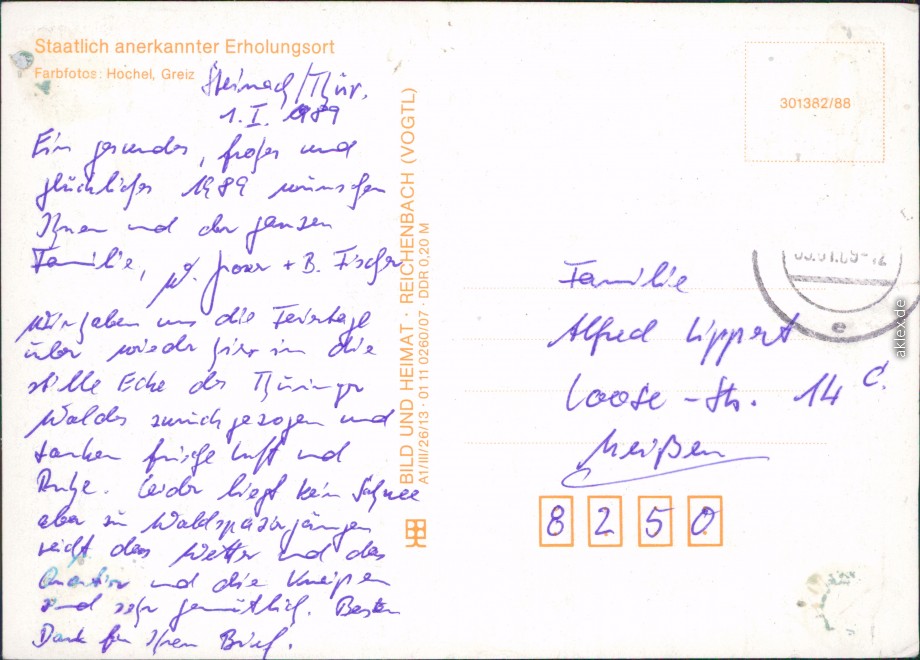 Staatlich anerkannter Erholungsort
Farbfotos: Hochel, Greiz
Steinach/Thür.
1. I. 1989
Ein gesundes, frohes und
glückliches 1989 wünschen
Ihnen und der ganzen
Familie, + B. Fischer
Wir haben uns die Feiertage
über wieder hier in die
stille Ecke des Thüringer
Waldes zurückgezogen und
tanken frische Luft und
Ruhe. Leider liegt kein Schnee
aber zu Waldspaziergängen
reicht das Wetter und das
Quartier und die Kneipen
sind sehr gemütlich. Besten
Dank für Ihren Brief.
BILD UND HEIMAT · REICHENBACH (VOGTL)
A1/III/26/13 · 01 11 0260/07 · DDR 0,20 M
301382/88
e
Familie
Alfred Lippert
Loose-Str. 14 c.
Meißen
8250
aklex.de